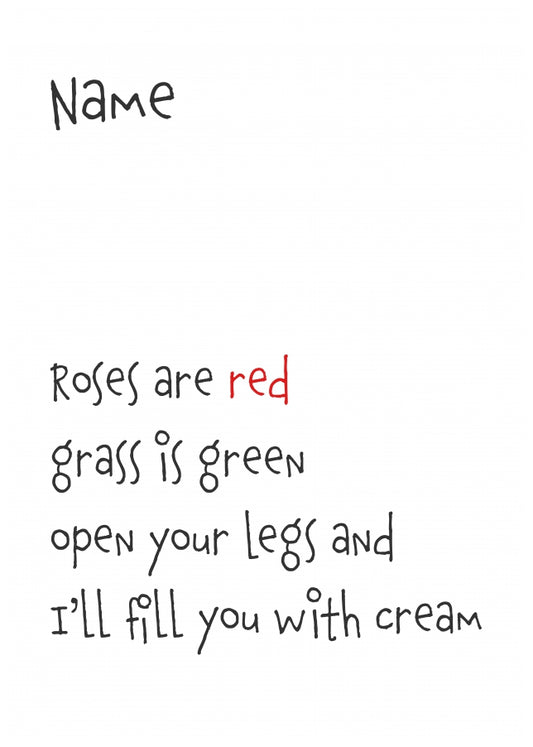 Name
Roses are red
grass is green
open your legs and
I'll fill you with cream